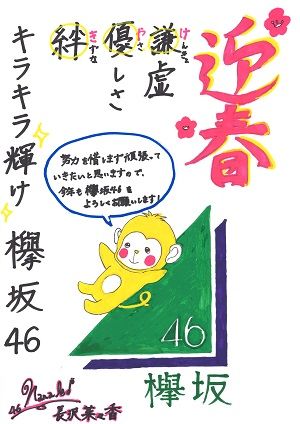 迎春
謙虚
けんきょ
優しさ
やさ
絆
きずな
キラキラ輝け 欅坂46
努力を惜しまず頑張って
いきたいと思いますので、
今年も欅坂46を
よろしくお願いします!
46
欅坂
46
長沢菜々香